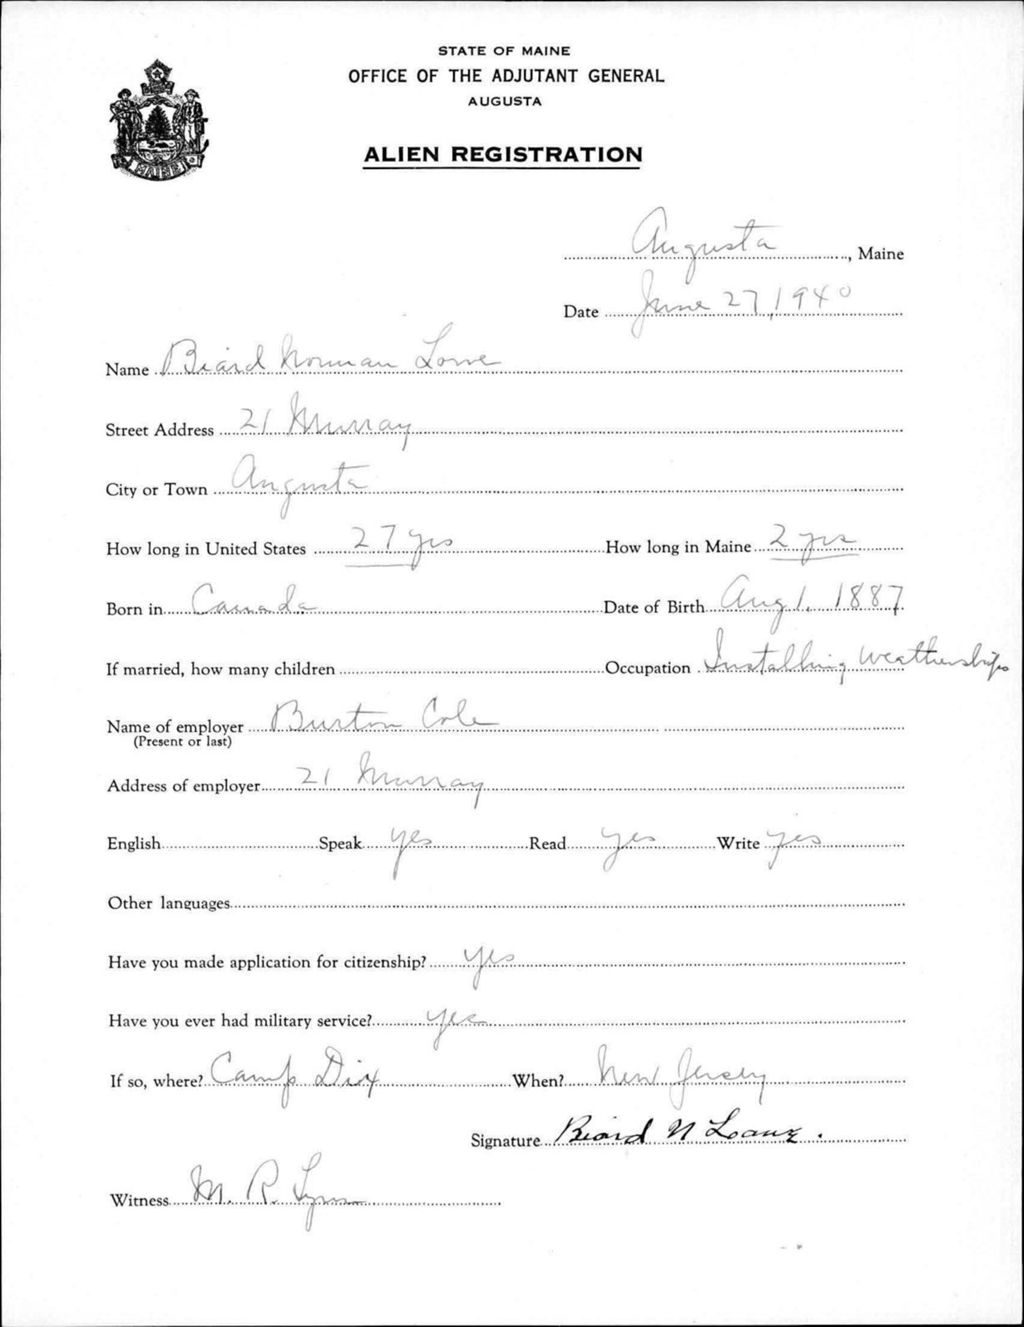 STATE OF MAINE
OFFICE OF THE ADJUTANT GENERAL
AUGUSTA
ALIEN REGISTRATION
MAINE
Augusta, Maine
Date June 27, 1940
Name Biard Norman Lowe
Street Address 21 Murray
City or Town Augusta
How long in United States 27 yrs How long in Maine 2 yrs
Born in Canada Date of Birth Aug 1, 1887
If married, how many children Occupation Installing Weatherstrips
Name of employer Burton Cole
(Present or last)
Address of employer 21 Murray
English Speak yes Read yes Write yes
Other languages
Have you made application for citizenship? yes
Have you ever had military service? yes
If so, where? Camp Dix When? New Jersey
Signature Biard N
Witness M. R.